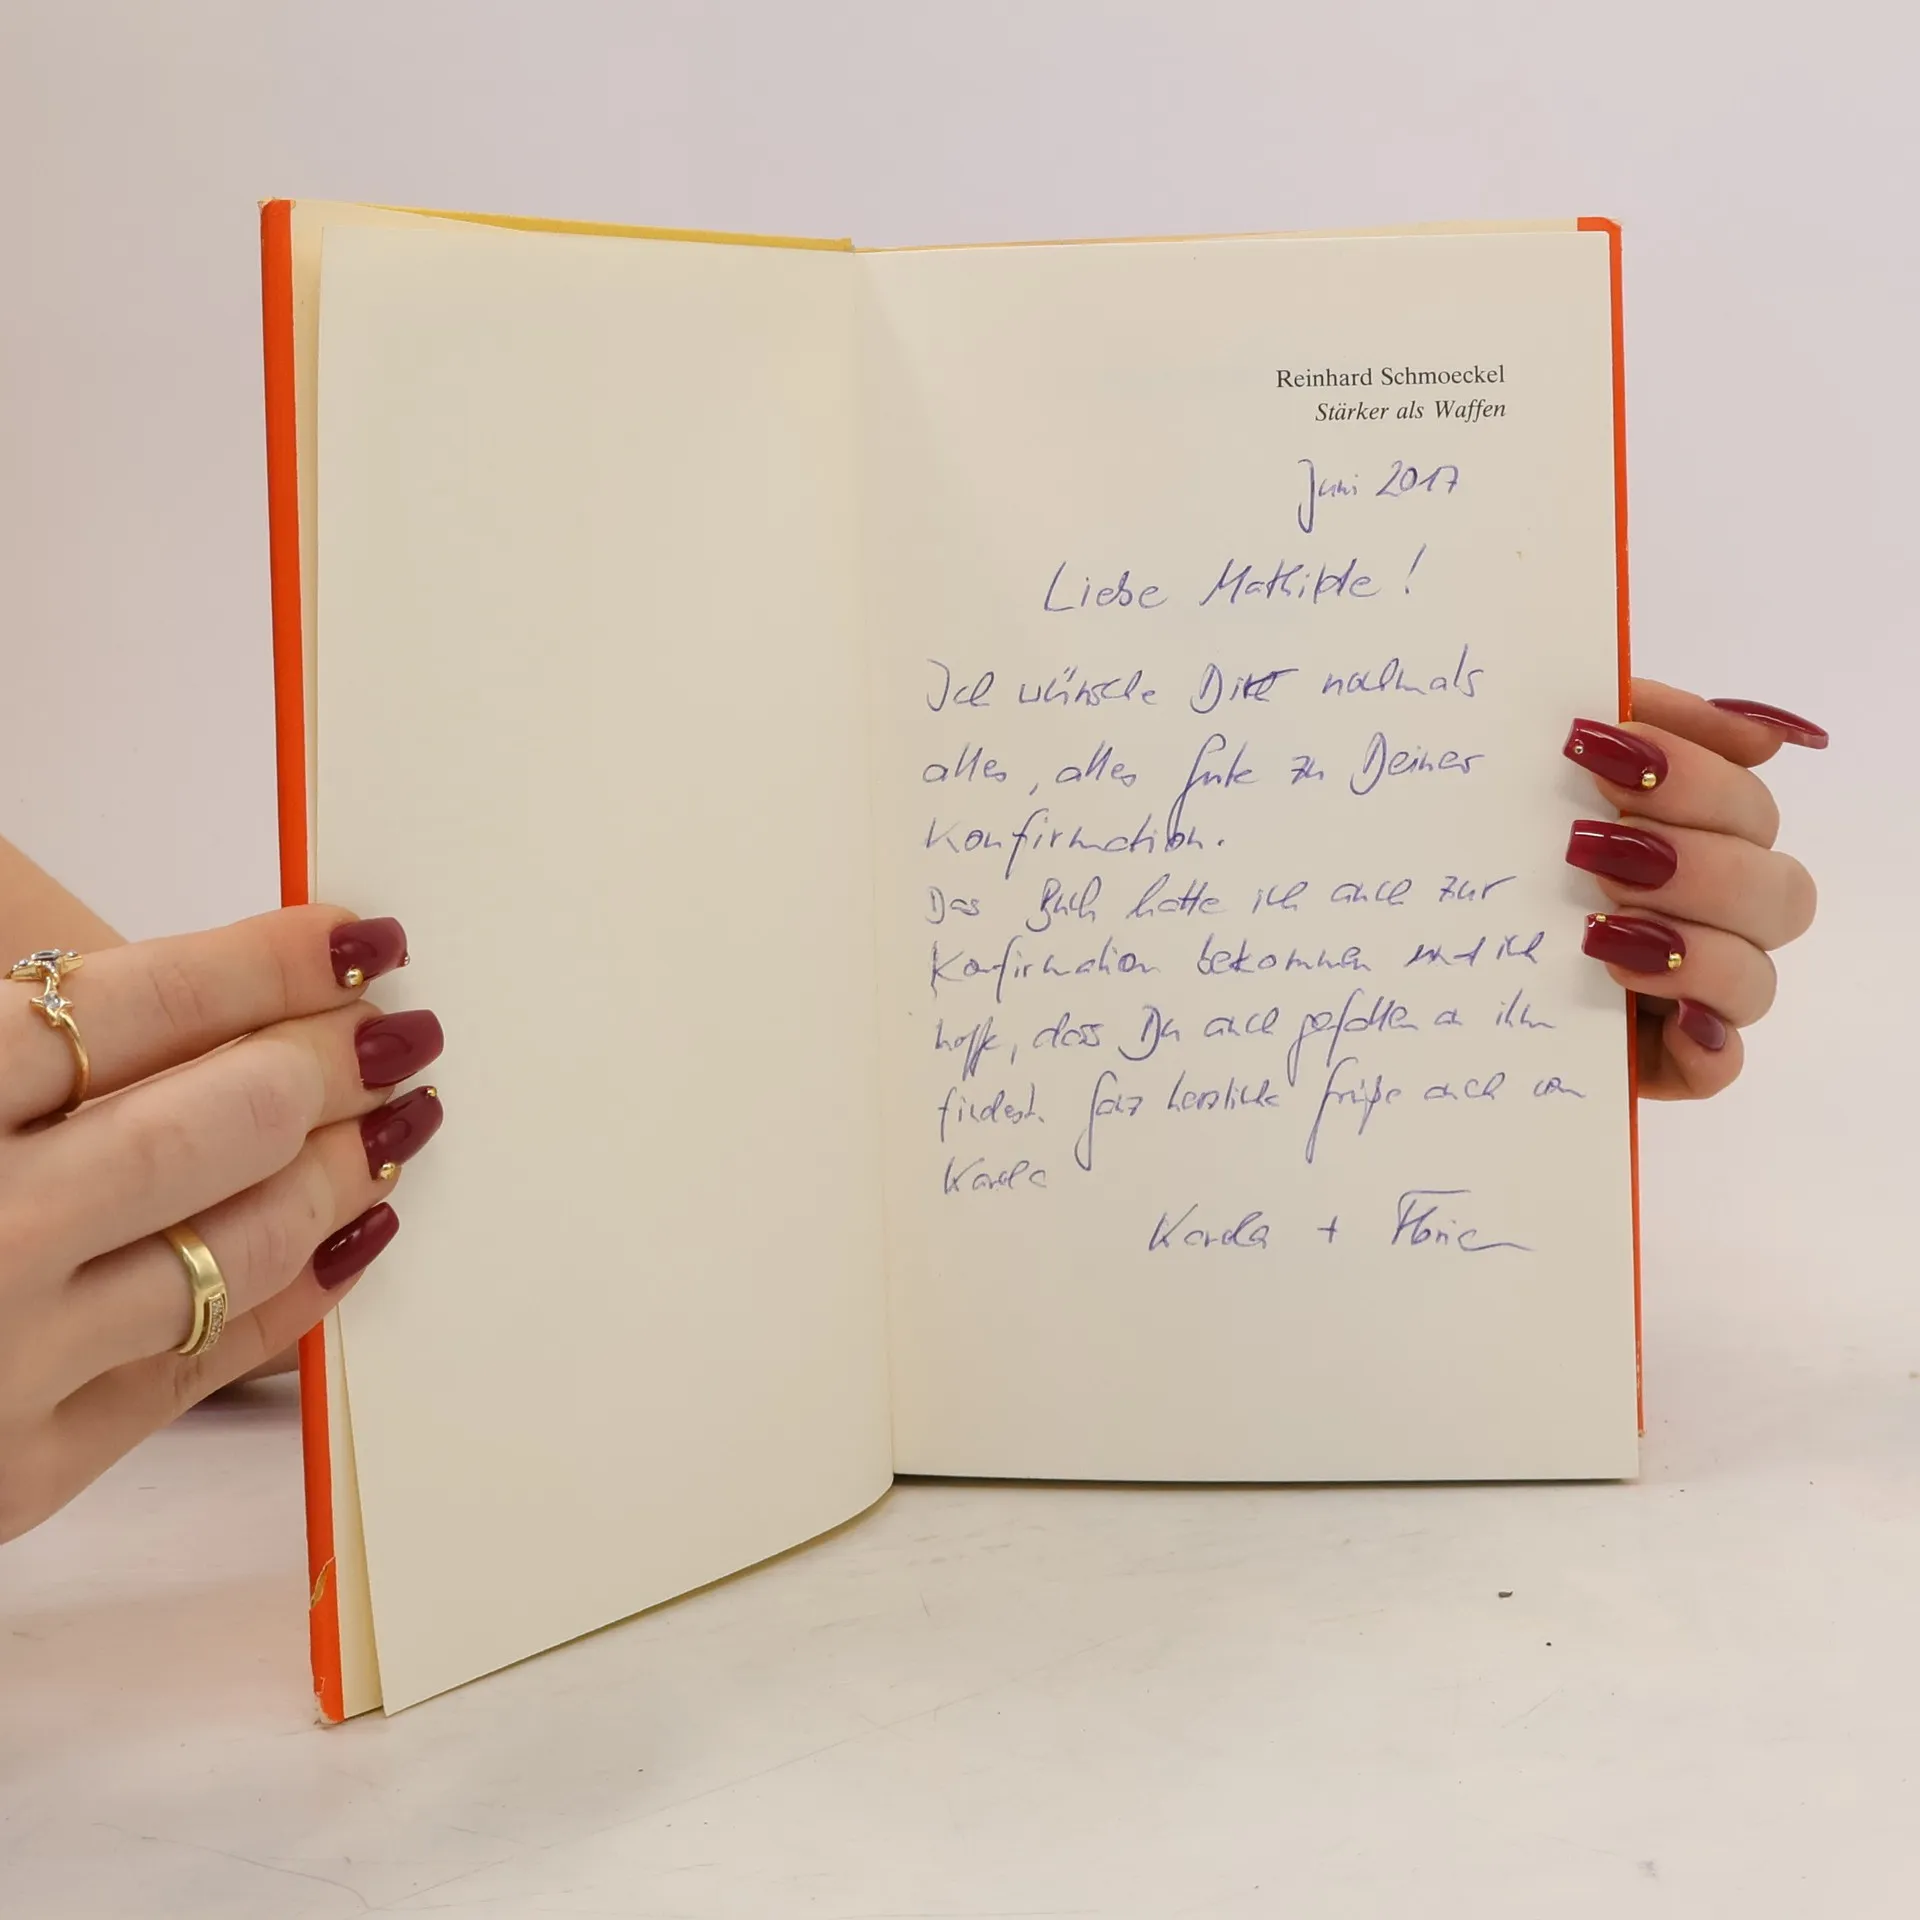 Reinhard Schmoeckel
Stärker als Waffen
Juni 2017
Liebe Mathilde!
Ich wünsche Dir nochmals
alles, alles Gute zu Deiner
Konfirmation.
Das Buch hatte ich auch zur
Konfirmation bekommen und ich
hoffe, dass Du auch gefallen an ihm
findest. Ganz herzliche Grüße auch von
Karola + Florian